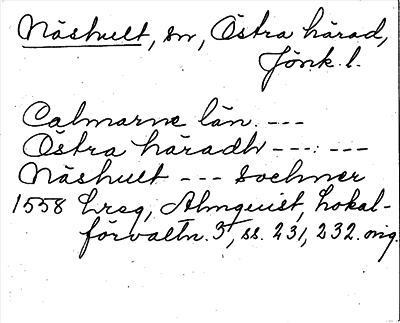 Näshult, sn, Östra härad,
Jönk. l.
Calmarne län. ---
Östra häradh --- ---
Näshult --- sochner
1558 hrsg, Almquist, Lokal-
förvaltn. 3, ss. 231, 232. orig.